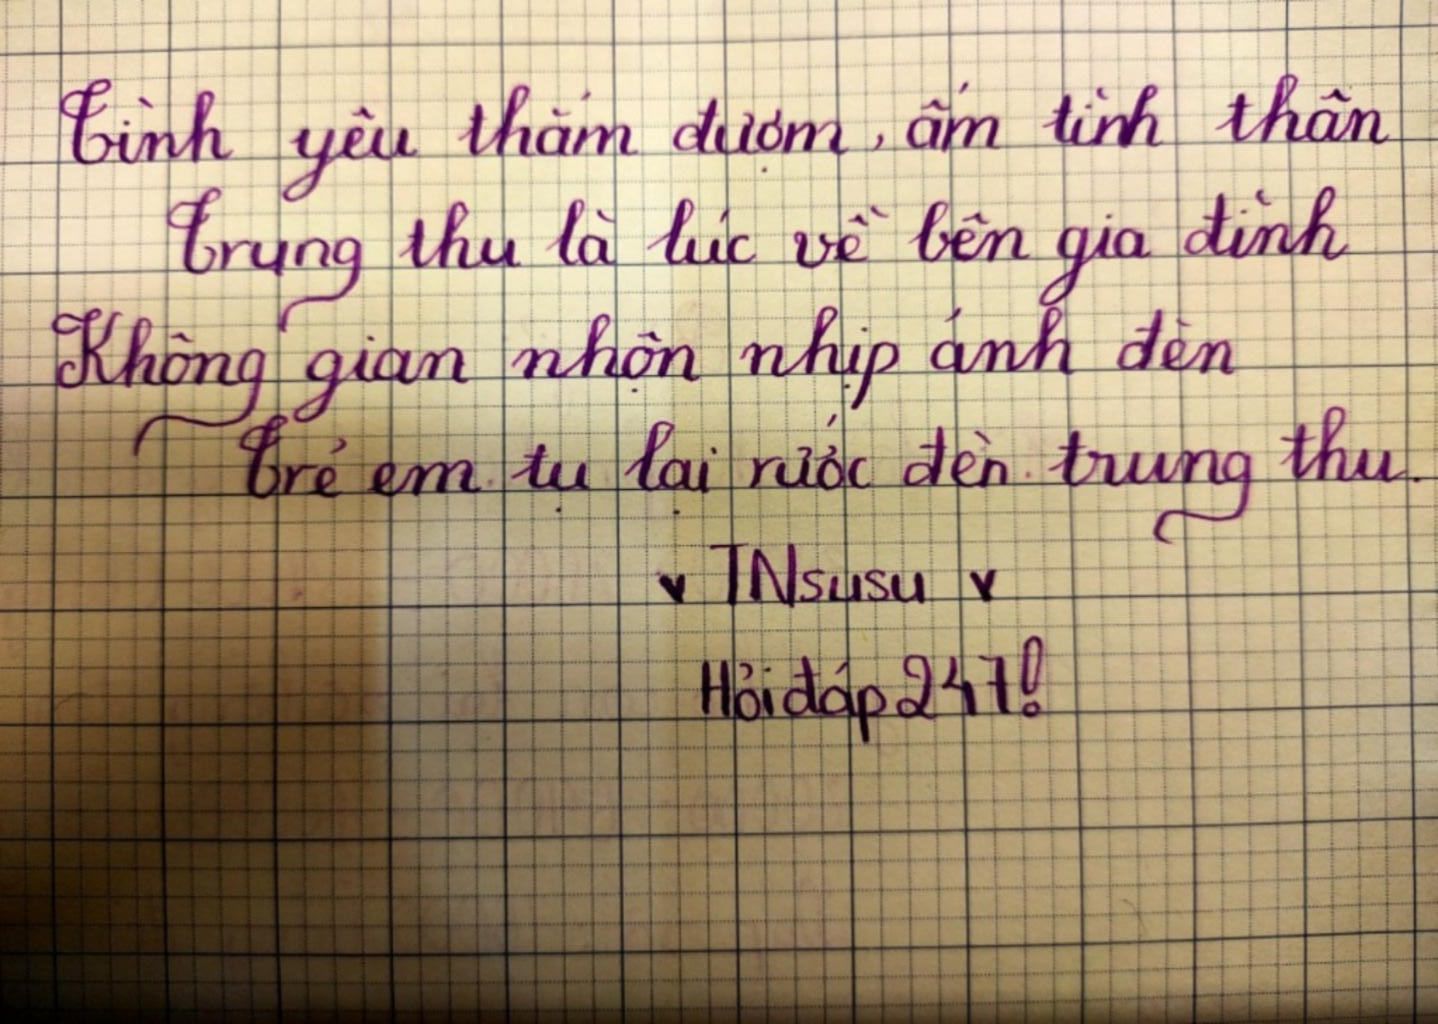 Tình yêu thắm đượm, ấm tình thân
Trung thu là lúc về bên gia đình
Không gian nhộn nhịp ánh đèn
Trẻ em tụ lại rước đèn trung thu.
TNsusu
Hỏi đáp 247!